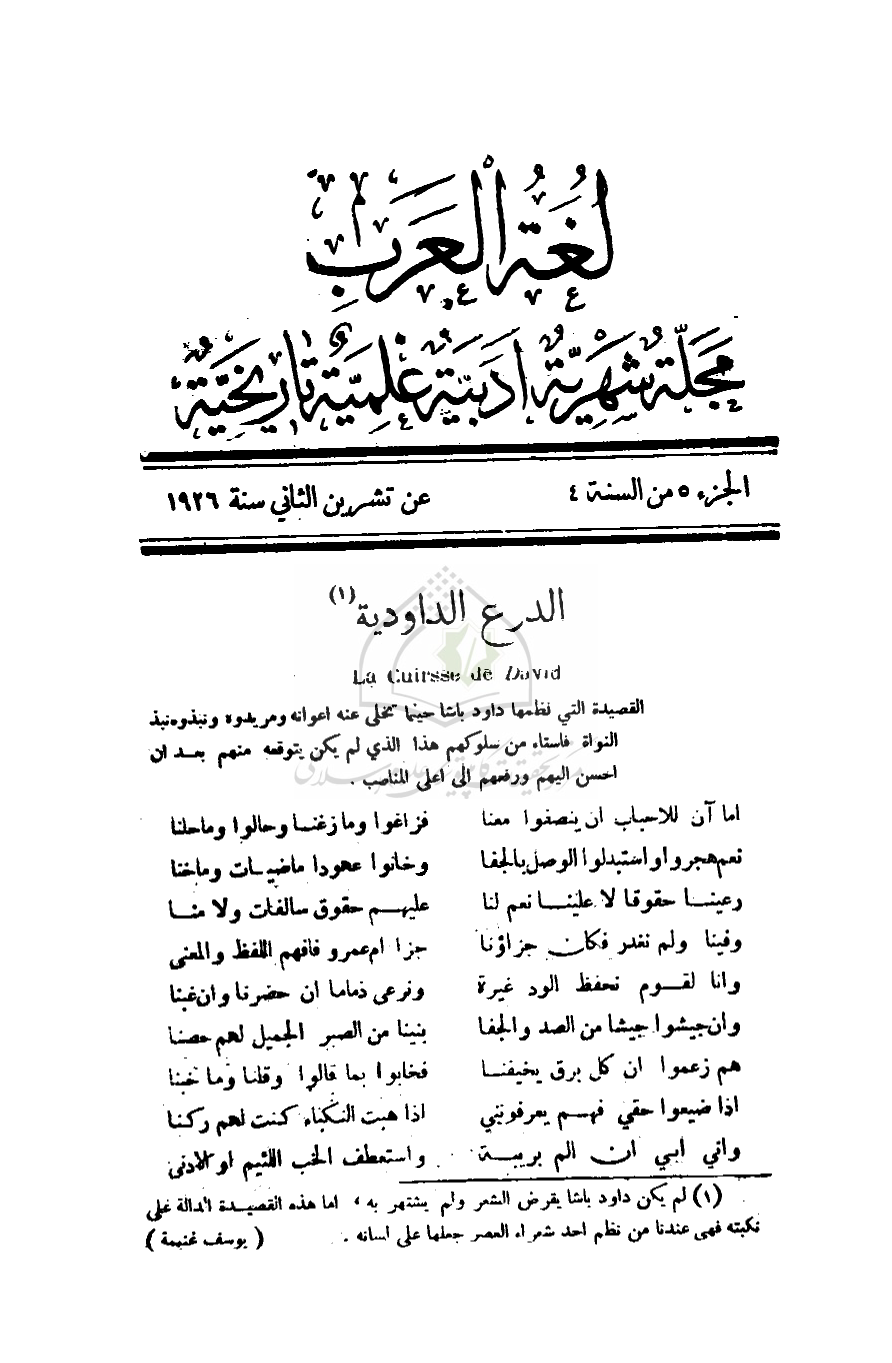 لُغَةُ الْعَرَبِ
مَجَلَّةٌ شَهْرِيَّةٌ اَدَبِيَّةٌ عِلْمِيَّةٌ تَارِيخِيَّةٌ
الجزء ٥ من السنة ٤ عن تشرين الثاني سنة ١٩٢٦
الدرع الداودية (١)
La Cuirsse de David
القصيدة التي نظمها داود باشا حينما تخلى عنه اعوانه ومريدوه ونبذوه نبذ
النواة فاستاء من سلوكهم هذا الذي لم يكن يتوقعه منهم بعد ان
احسن اليهم ورفعهم الى اعلى المناصب .
اما آن للاحباب ان ينصفوا معنا فزاغوا وما زغنا وحالوا وماحلنا
نعم هجروا واستبدلوا الوصل بالجفا وخانوا عهودا ماضيات وماخنا
رعينا حقوقا لا علينا نعم لنا عليهم حقوق سالفات ولا منا
وفينا ولم نغدر فكان جزاؤنا جزا ام عمرو فافهم اللفظ والمعنى
وانا لقوم نحفظ الود غيرة ونرعى ذماما ان حضرنا وان غبنا
وان جيشوا جيشا من الصد والجفا بنينا من الصبر الجميل لهم حصنا
هم زعموا ان كل برق يخيفنا فخابوا بما قالوا وقلنا وما خبنا
اذا ضيعوا حقي فهم يعرفونني اذا هبت النكباء كنت لهم ركنا
واني ابي ان الم بريبة واستعطف الخب اللئيم او الادنى
(١) لم يكن داود باشا يقرض الشعر ولم يشتهر به ، اما هذه القصيدة الدالة على
نكبته فهي عندنا من نظم احد شعراء العصر جعلها على لسانه . ( يوسف غنيمة )